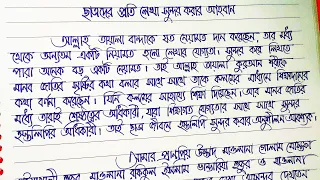 ছাত্রদের প্রতি লেখা সুন্দর করার আহবান
আল্লাহ তায়ালা বান্দাকে যত নেয়ামত দান করেছেন, তার মধ্যে
থেকে অন্যতম একটি নিয়ামত হলো লেখার যোগ্যতা। সুন্দর করে লিখতে
পারা অনেক বড় একটি নেয়ামত। তাই আল্লাহ তায়ালা কুরআনে শরীফে
মানব জাতির সৃষ্টির কথা বলার সাথে সাথে তাকে কলমের মাধ্যমে শিক্ষাদানের
কথা বর্ণনা করেছেন। যিনি কলমের সাহায্যে শিক্ষা দিয়েছেন। আর মানব জাতির
মধ্যে তারাই শ্রেষ্ঠত্বের অধিকারী, যারা শিক্ষাগত যোগ্যতার সাথে সাথে সুন্দর
হস্তলিপির অধিকারী। তাই ছাত্র জীবনে হস্তলিপি সুন্দর করার অনুশীলন আবশ্যক।
আমার প্রাণপ্রিয় উস্তাদ মাওলানা গোলাম মোস্তফা
হুজুর ও মাওলানা